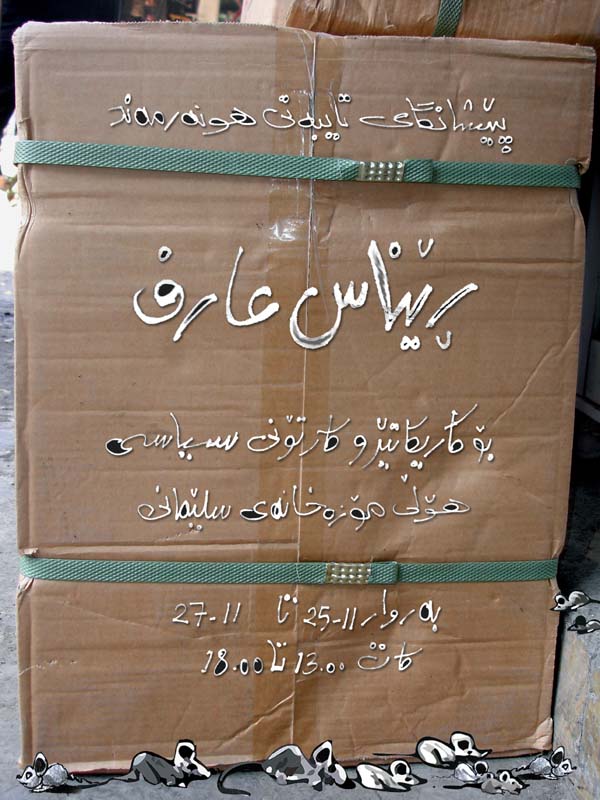 پێشانگای تایبەتی هونەرمەند
ڕێناس عارف
بۆ کاریکاتێر و کارتۆنی سیاسی
هۆڵی مۆزەخانەی سلێمانی
بەروار 25-11 تا 27-11
کات 13.00 تا 18.00